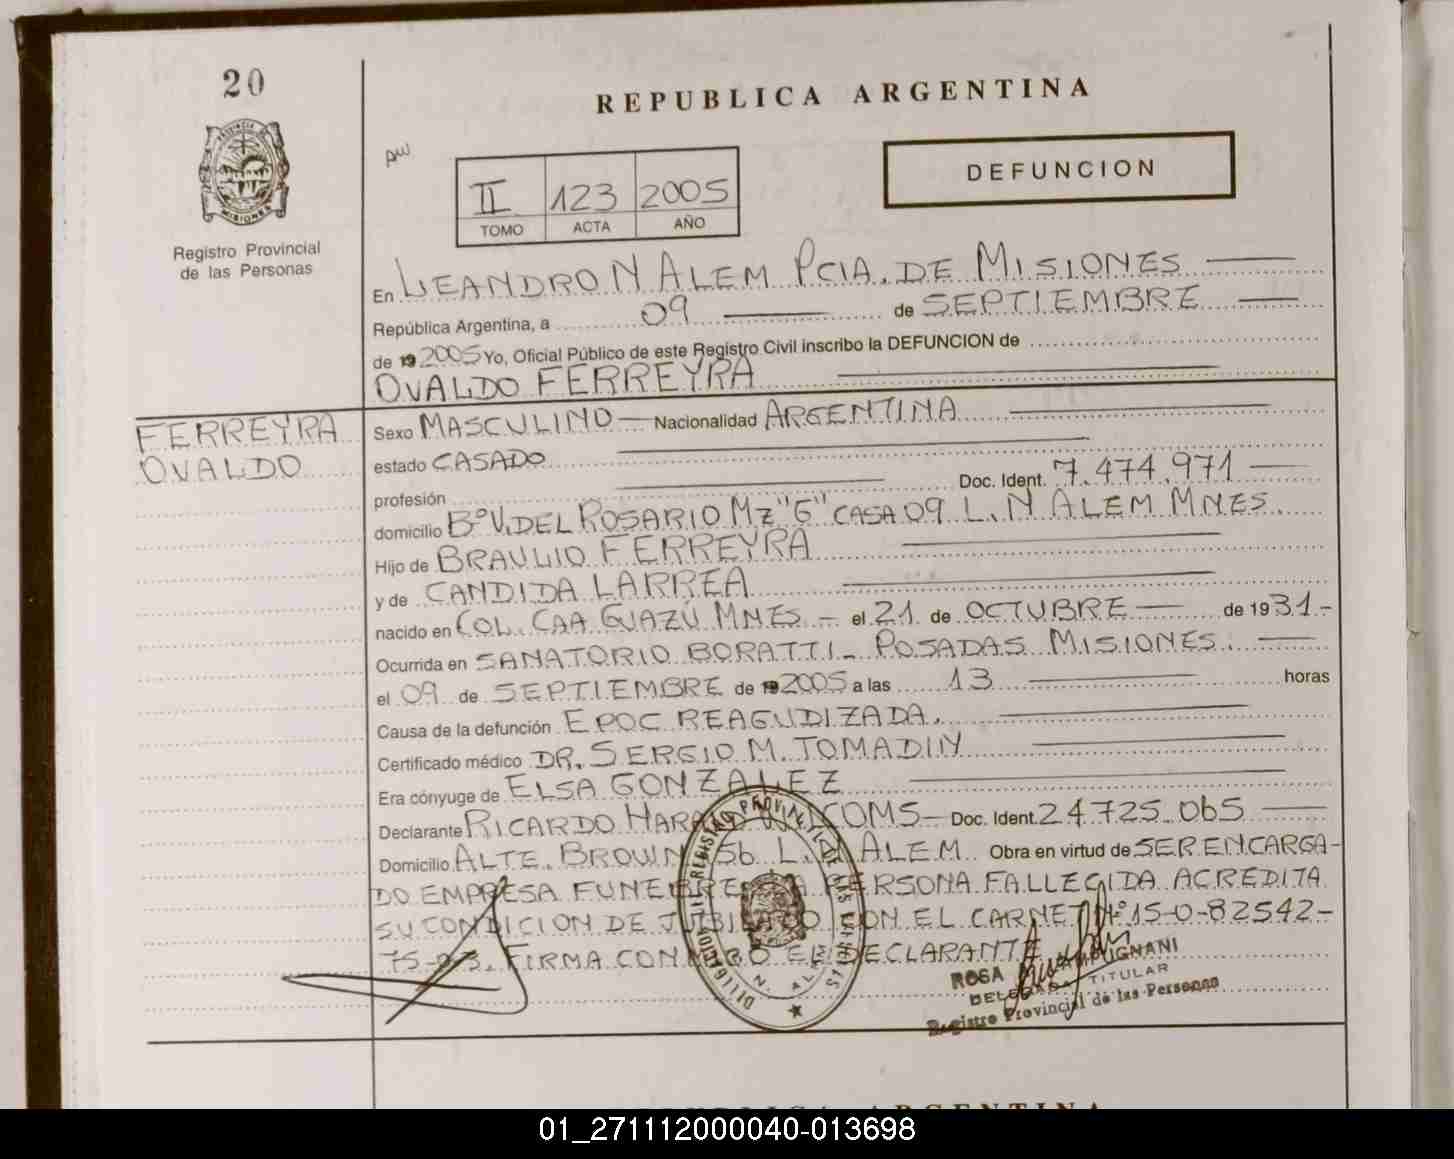 20
REPUBLICA ARGENTINA
PROVINCIA DE
MISIONES
Registro Provincial
de las Personas
II 123 2005
TOMO ACTA AÑO
DEFUNCION
En LEANDRO N ALEM PCIA. DE MISIONES
República Argentina, a 09 de SEPTIEMBRE
de 19 2005 Yo, Oficial Público de este Registro Civil inscribo la DEFUNCION de
OVALDO FERREYRA
FERREYRA
OVALDO
Sexo MASCULINO Nacionalidad ARGENTINA
estado CASADO
profesión Doc. Ident. 7.474.971
domicilio B° V. DEL ROSARIO MZ "G" CASA 09 L. N ALEM MNES.
Hijo de BRAULIO FERREYRA
y de CANDIDA LARREA
nacido en COL. CAA GUAZÚ MNES - el 21 de OCTUBRE de 1931.-
Ocurrida en SANATORIO BORATTI - POSADAS MISIONES.
el 09 de SEPTIEMBRE de 19 2005 a las 13 horas
Causa de la defunción EPOC REAGUDIZADA.
Certificado médico DR. SERGIO M. TOMADIN
Era cónyuge de ELSA GONZALEZ
Declarante RICARDO Doc. Ident. 24.725.065
Domicilio ALTE. BROWN 56 L. N ALEM Obra en virtud de SER ENCARGA-
DO EMPRESA FUNEBRE LA PERSONA FALLECIDA ACREDITA
SU CONDICION DE JUBILADO CON EL CARNET N° 15-0-82542-
FIRMA CONMIGO EL DECLARANTE
ROSA
DELEGADA TITULAR
Registro Provincial de las Personas
REPUBLICA ARGENTINA
01_271112000040-013698